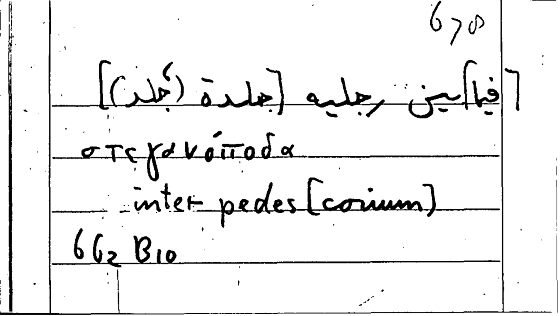 678
[فيما]بين رجليه [جلدة (جُلد)]
στεγανόποδα
inter pedes [corium]
662 B10